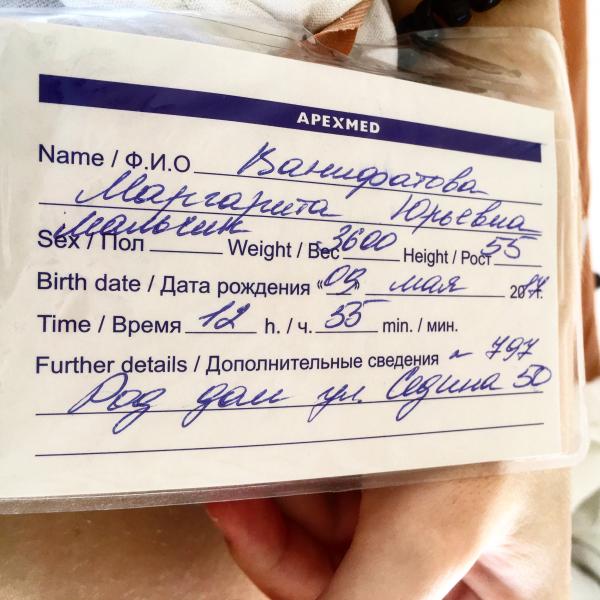 APEXMED
Name / Ф.И.О Ванифатова
Маргарита Юрьевна
Мальчик
Sex / Пол Weight / Вес 3600 Height / Рост 55
Birth date / Дата рождения « 09 » мая 20 г.
Time / Время 12 h. / ч. 55 min. / мин.
Further details / Дополнительные сведения ~ 797
Род дом ул. Седина 50